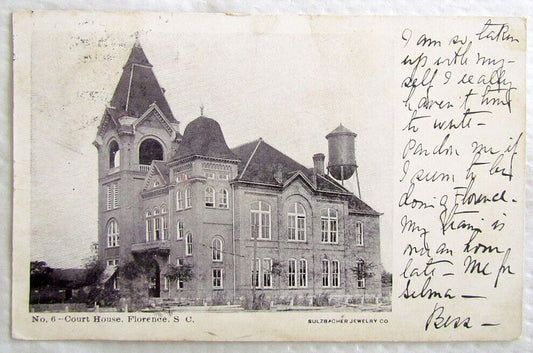 I am so taken
up with my-
self I really
haven't time
to write—
Pardon me if
I seem to be
doing Florence.
My train is
now an hour
late— Me for
Selma—
Bess—
No. 6 - Court House. Florence. S. C.
SULZBACHER JEWELRY CO